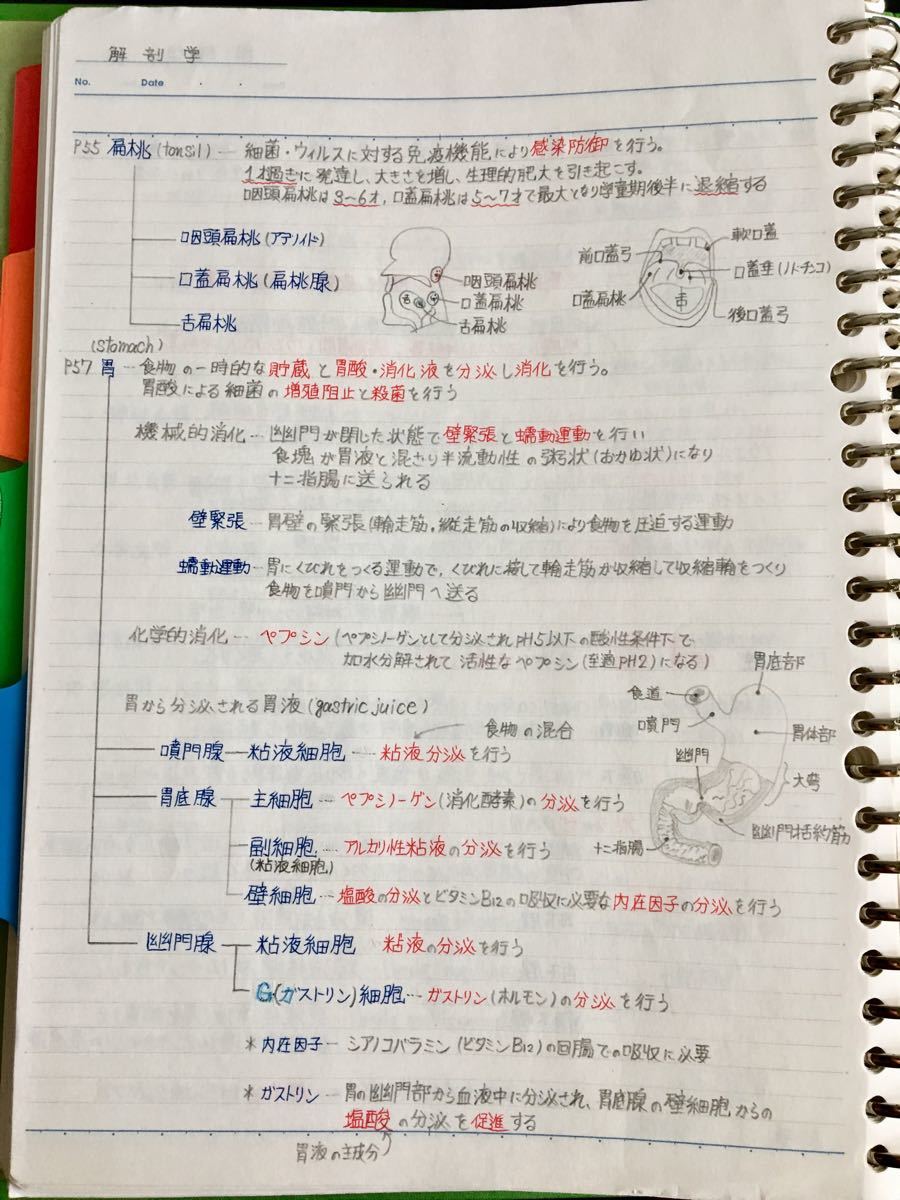 解剖学
No. Date
P55 扁桃(tonsil) ― 細菌・ウィルスに対する免疫機能により感染防御を行う。
1才過ぎに発達し、大きさを増し、生理的肥大を引き起こす。
咽頭扁桃は3〜6才、口蓋扁桃は5〜7才で最大となり学童期後半に退縮する
咽頭扁桃(アデノイド)
口蓋扁桃(扁桃腺)
舌扁桃
咽頭扁桃
口蓋扁桃
舌扁桃
舌
前口蓋弓
軟口蓋
口蓋垂(ノドチンコ)
口蓋扁桃
後口蓋弓
舌
(stomach)
P57 胃 ― 食物の一時的な貯蔵と胃酸・消化液を分泌し消化を行う。
胃酸による細菌の増殖阻止と殺菌を行う
機械的消化 … 幽門が閉じた状態で壁緊張と蠕動運動を行い
食塊が胃液と混ざり半流動性の粥状(おかゆ状)になり
十二指腸に送られる
壁緊張 ― 胃壁の緊張(輪走筋・縦走筋の収縮)により食物を圧迫する運動
蠕動運動 … 胃にくびれをつくる運動で、くびれに接して輪走筋が収縮して収縮輪をつくり
食物を噴門から幽門へ送る
化学的消化 … ペプシン(ペプシノーゲンとして分泌されPH5以下の酸性条件下で
加水分解されて活性なペプシン(至適PH2)になる)
胃から分泌される胃液(gastric juice)
食物の混合
噴門腺 ― 粘液細胞 … 粘液分泌を行う
胃底腺 ― 主細胞 … ペプシノーゲン(消化酵素)の分泌を行う
副細胞 … アルカリ性粘液の分泌を行う
(粘液細胞)
壁細胞 … 塩酸の分泌とビタミンB12の吸収に必要な内在因子の分泌を行う
幽門腺 ― 粘液細胞 粘液の分泌を行う
G(ガストリン)細胞 … ガストリン(ホルモン)の分泌を行う
食道
噴門
胃底部
胃体部
幽門
大弯
幽門括約筋
十二指腸
* 内在因子 ― シアノコバラミン(ビタミンB12)の回腸での吸収に必要
* ガストリン ― 胃の幽門部から血液中に分泌され、胃底腺の壁細胞からの
塩酸の分泌を促進する
胃液の主成分